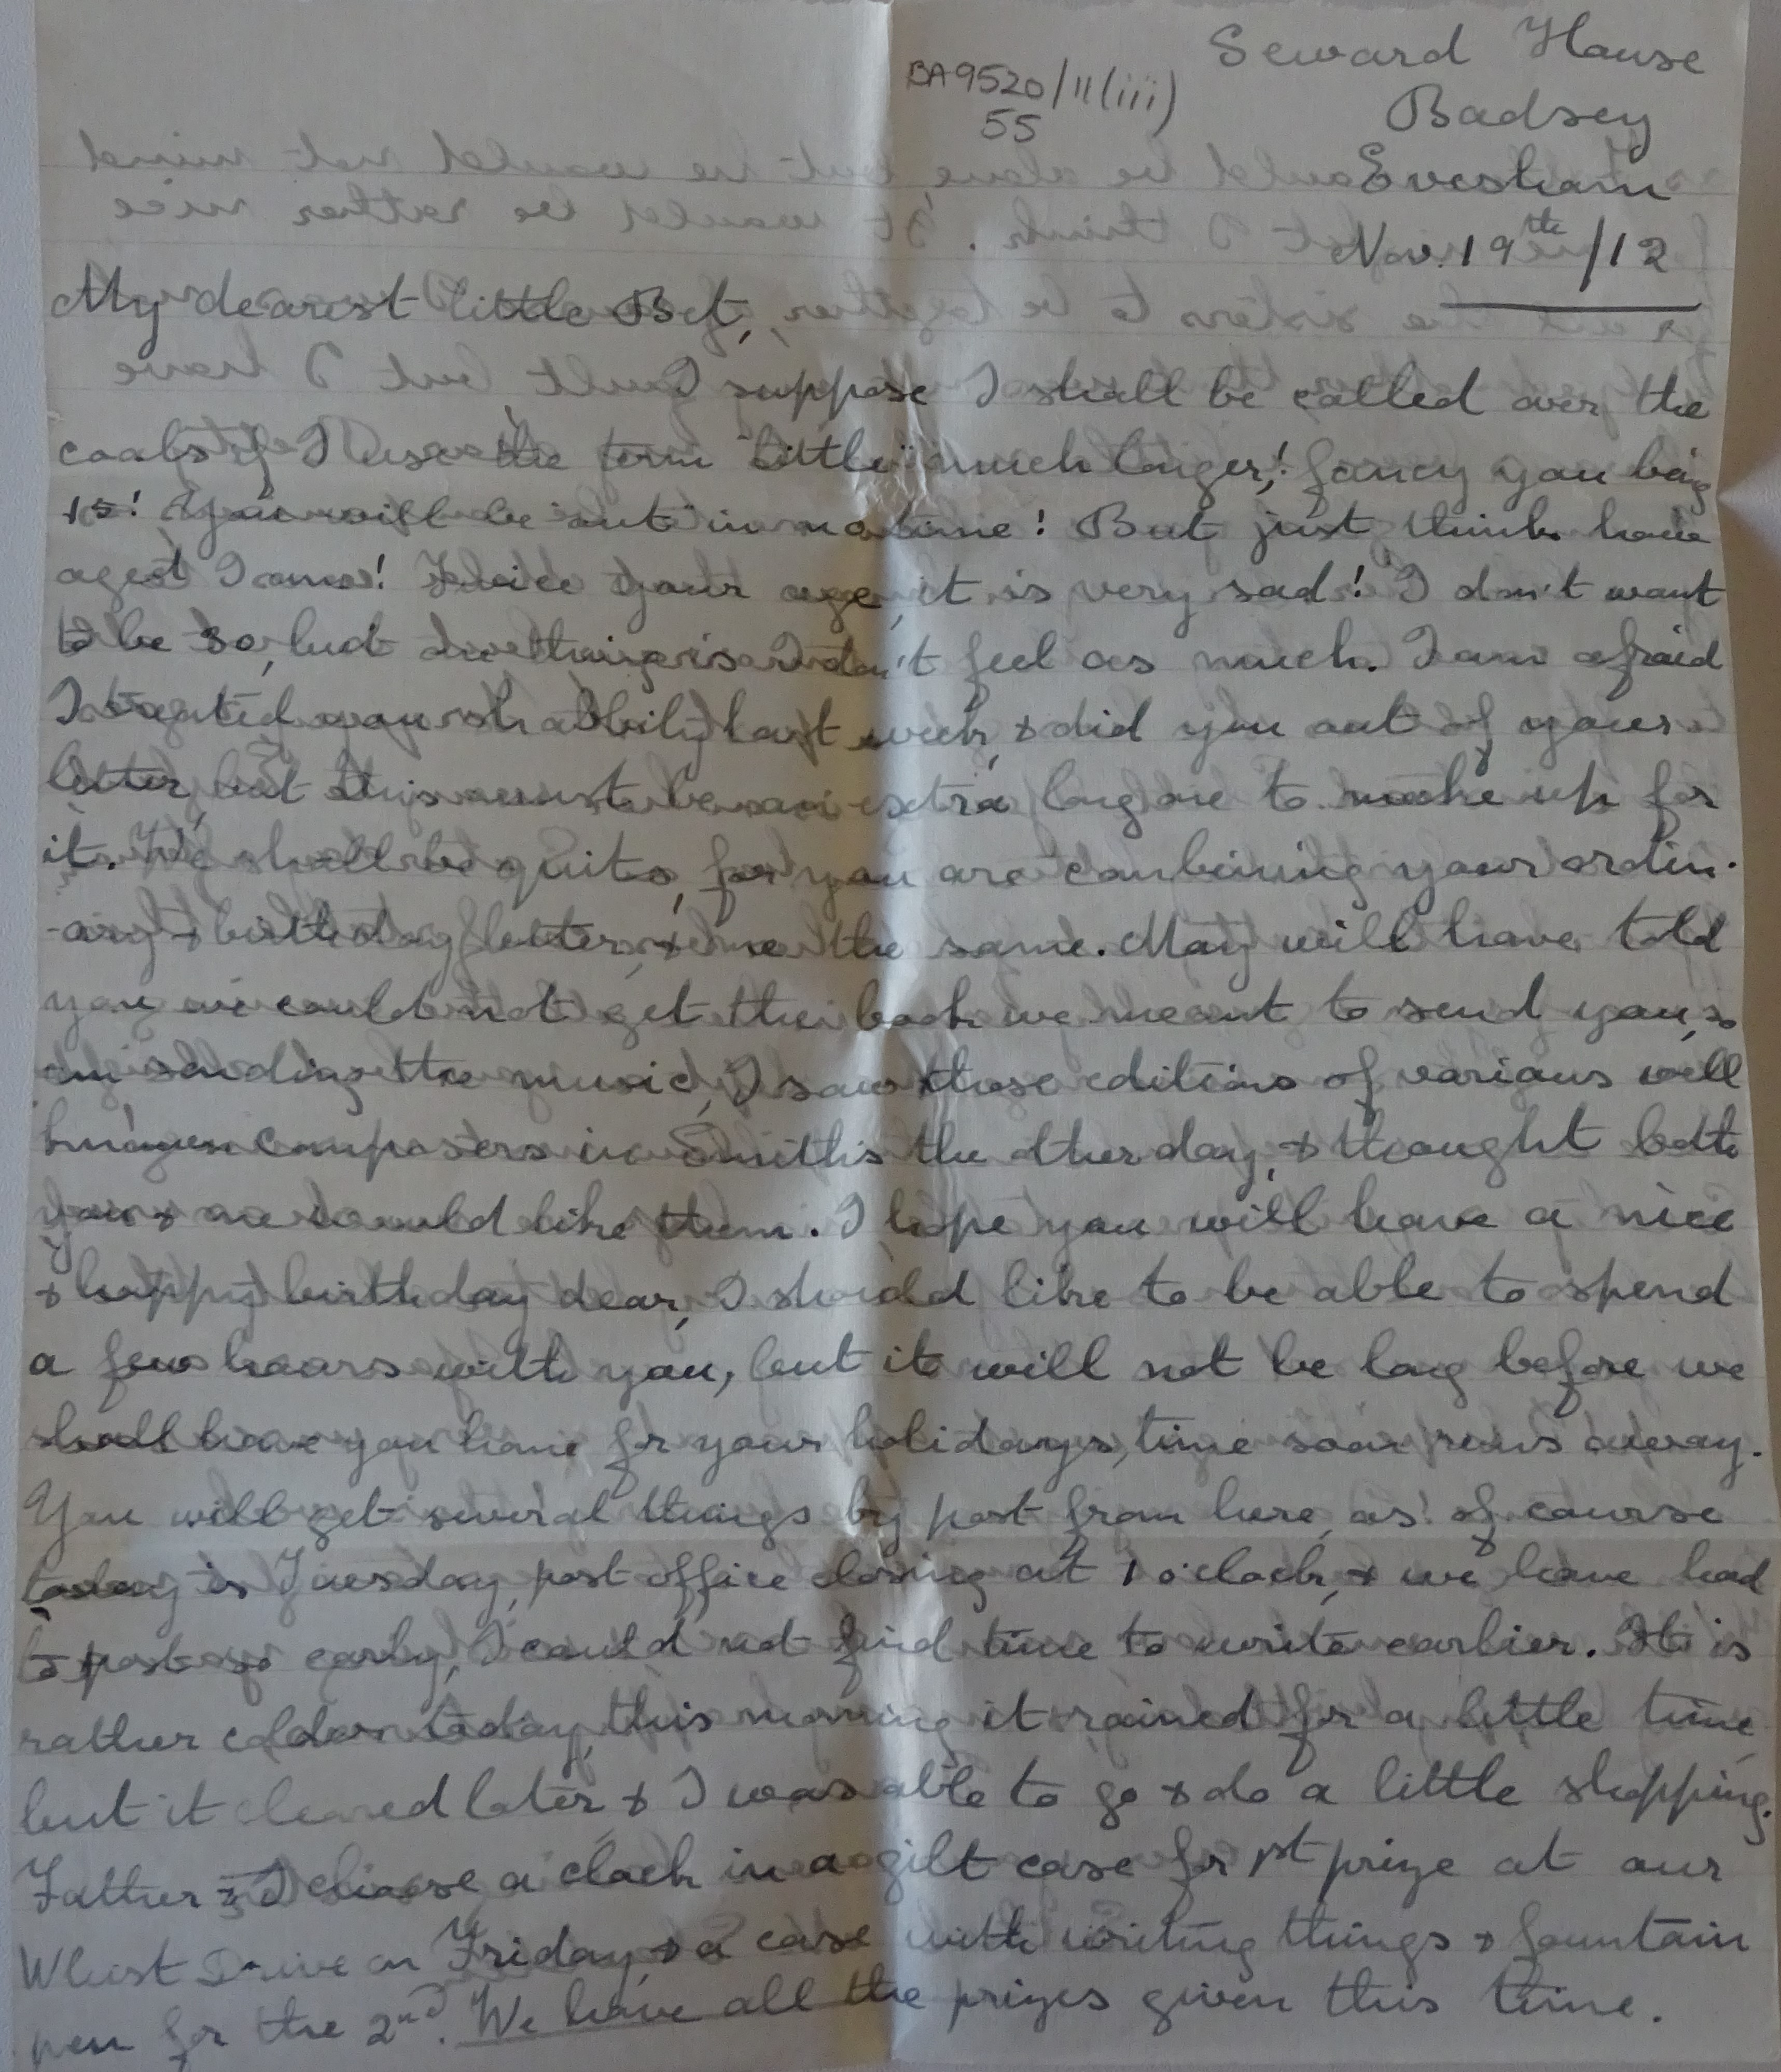 Seward House
BA9520/11(iii)
55
Badsey
Evesham
Nov. 19th/12
My dearest little Bet,
I suppose I shall be called over the
coals if I use the term "little" much longer! fancy you being
15! You will be "out" in no time! But just think how
aged I am! Twice your age, it is very sad! I don't want
to be 30, but one thing is I don't feel as much. I am afraid
I treated you shabbily last week, & did you out of your
letter, but this must be an extra long one to make up for
it. We shall be quits, for you are combining your ordin-
-ary & birthday letter, & me the same. May will have told
you we could not get the book we meant to send you, so
am sending the music, I saw these editions of various well
known composers in Smith's the other day, & thought both
you & me would like them. I hope you will have a nice
& happy birthday dear, I should like to be able to spend
a few hours with you, but it will not be long before we
shall have you home for your holidays, time soon runs away.
You will get several things by post from here, as of course
today is Tuesday, post office closing at 1 o'clock, & we have had
to post so early, I could not find time to write earlier. It is
rather colder today, this morning it rained for a little time
but it cleared later & I was able to go & do a little shopping.
Father & I choose a clock in a gilt case for 1st prize at our
Whist Drive on Friday, & a case with writing things & fountain
pen for the 2nd. We have all the prizes given this time.